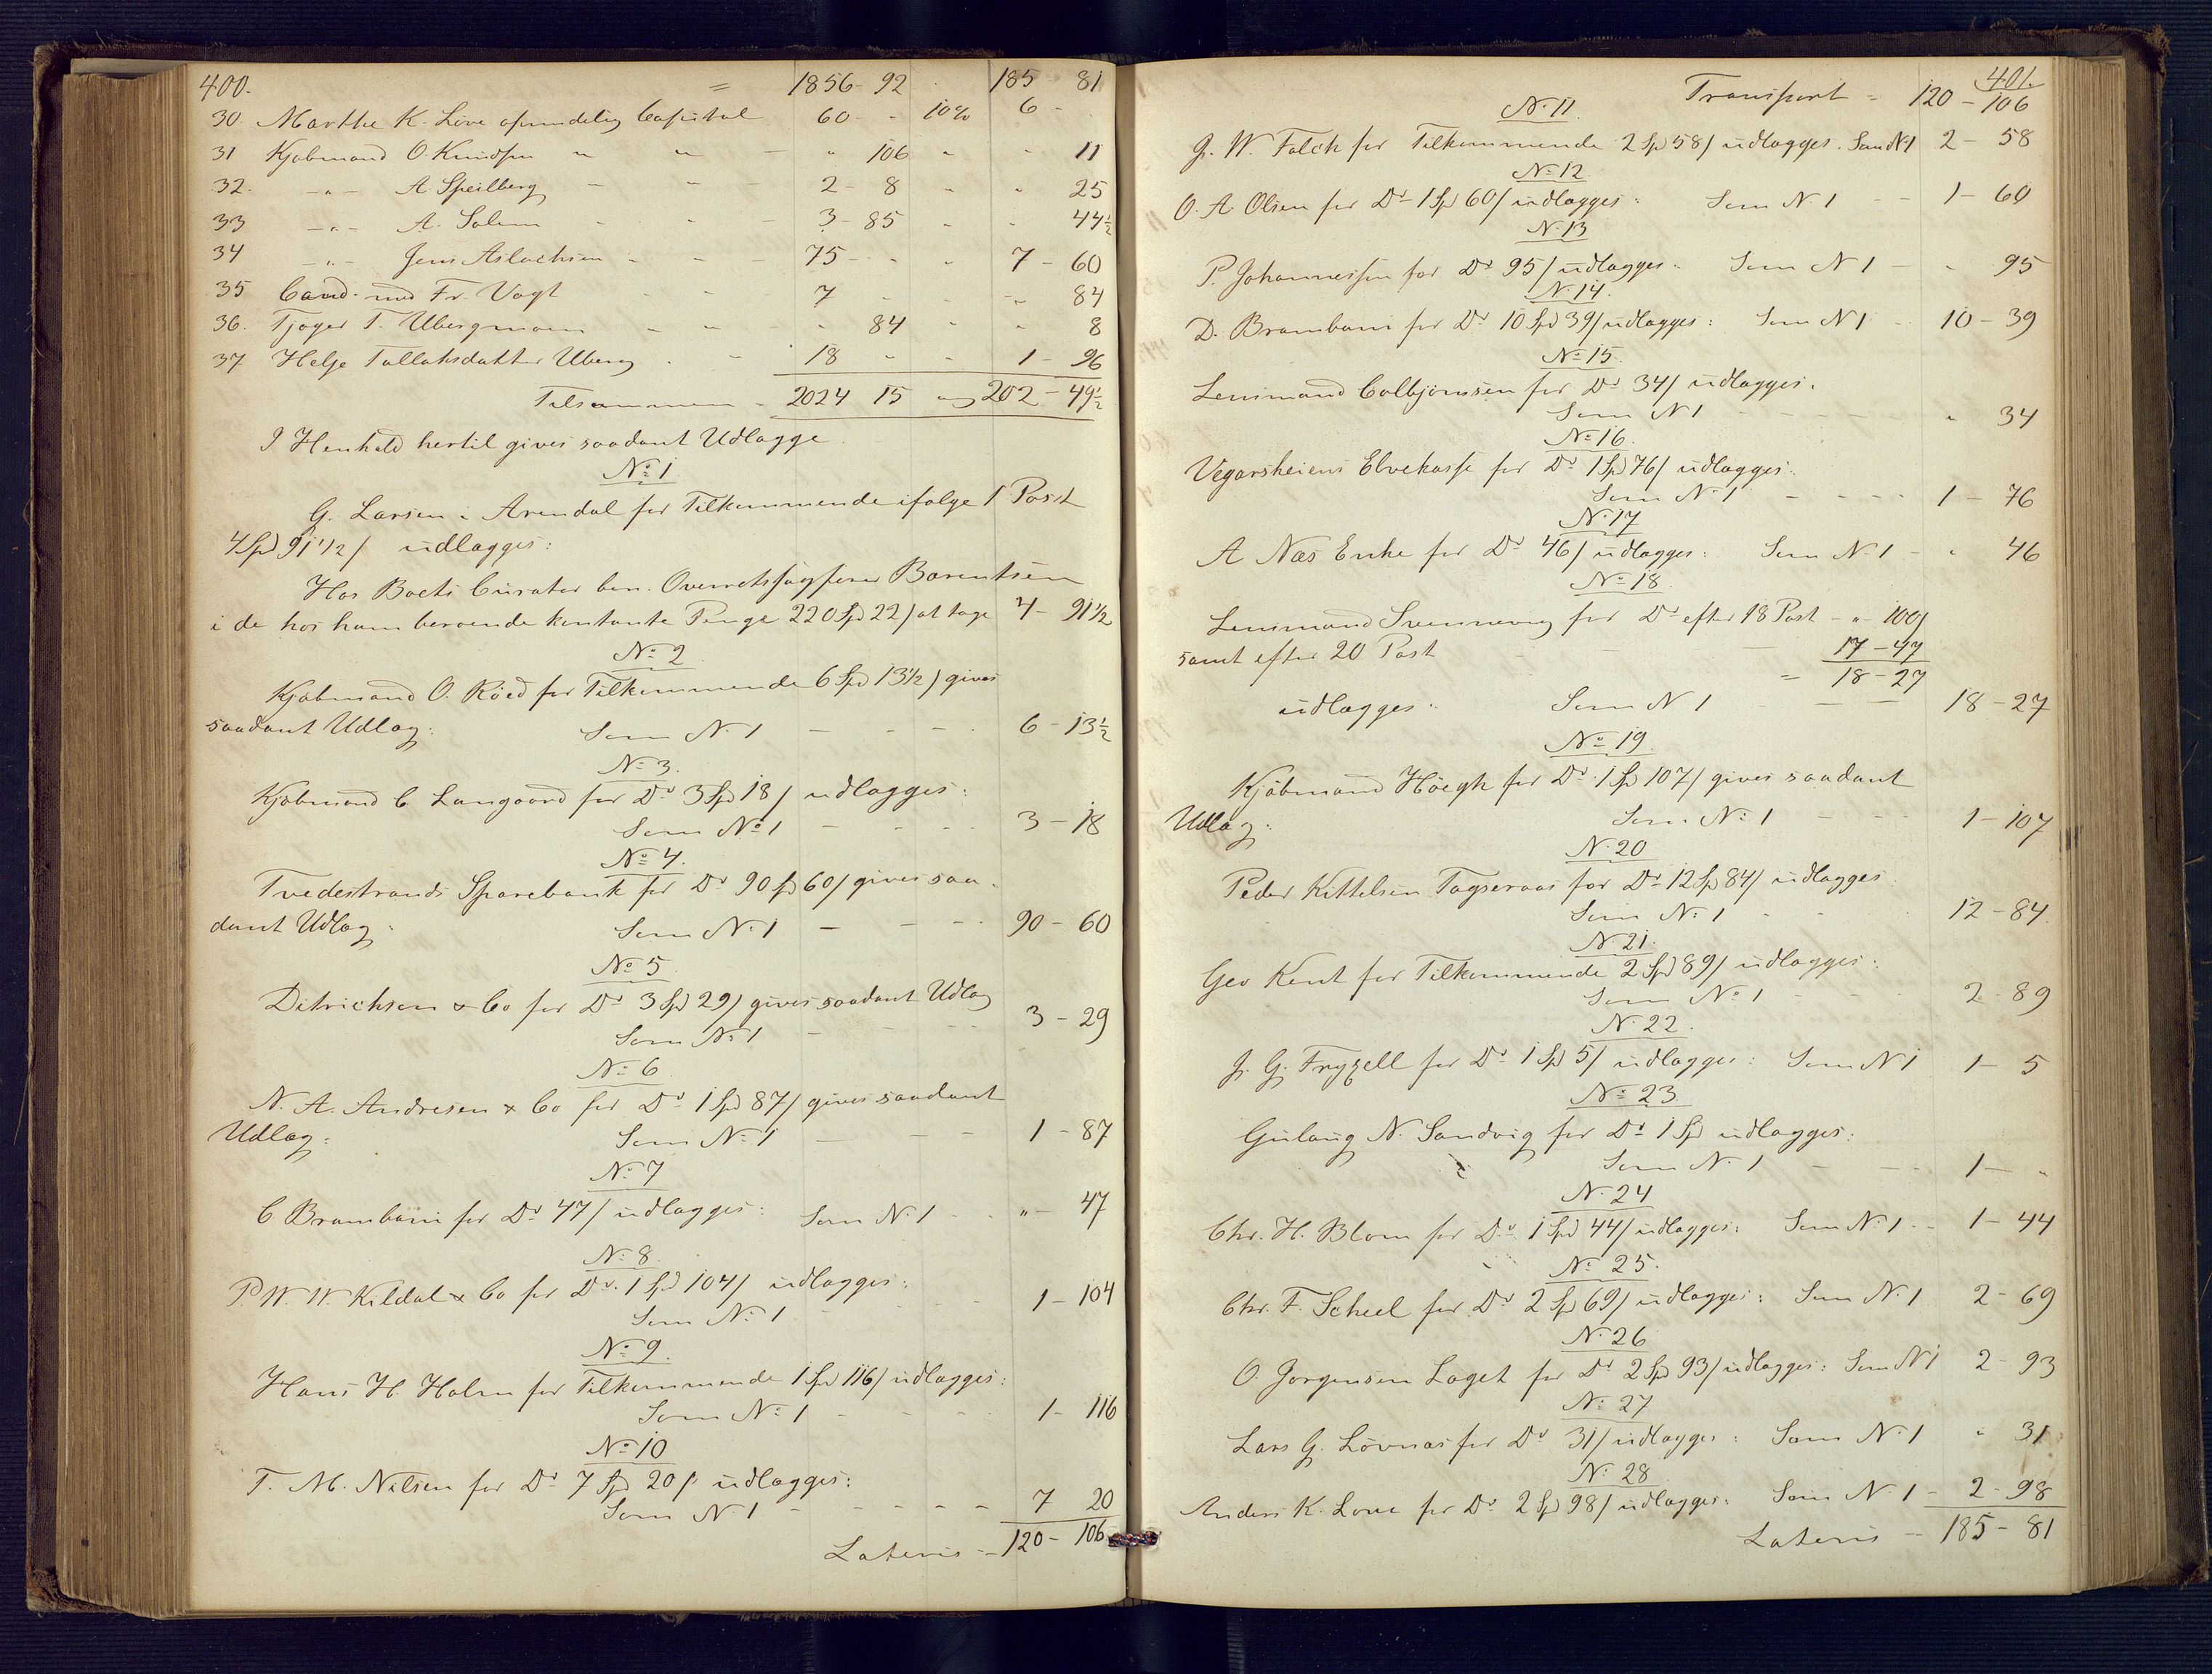 400.
= 1856 - 92 185 81
30. Marthe K. Love oprindelig Capital 60 - - 10% 6 -
31 Kjøbmand O. Knudsen " " - " 106 " " 11
32. -"- A. Speilberg - - 2 - 8 " " 25
33 -"- A. Solem - - 3 - 85 " " 44½
34 -"- Jens Aslachsen - - - 75 - - " 7 - 60
35 Cand. med Fr. Vogt - - 7 - - -"- 84
36. Tjøger T. Ubergmoen - - " 84 " " 8
37 Helje Tallaksdatter Uberg . - 18 " - 1 - 96
Tilsammen - 2024 15 og 202 - 49½
I Henhold hertil gives saadant Udlægge.
No 1
G. Larsen i Arendal for Tilkommende ifølge 1 Post
4 Spd 91 1/2 / udlægges:
Hos Boets Curator ben. Overretssagfører Barentsen
i de hos ham beroende kontante Penge 220 Spd 22/ at tage 4 - 91 1/2
No 2
Kjøbmand O. Röed for Tilkommende 6 Spd 13½ / gives
saadant Udlæg: Som No 1 - - - - 6 - 13½
No 3.
Kjøbmand C Langaard for Do 3 Spd 18/ udlægges:
Som No 1 - - - - 3 - 18
No 4.
Tvedestrands Sparebank for Do 90 Spd 60/ gives saa-
dant Udlæg: Som No 1 - - - - 90 - 60
No 5
Ditrichsen & Co for Do 3 Spd 29/ gives saadant Udlæg
Som No 1 - - - - 3 - 29
No 6
N. A. Andresen & Co for Do 1 Spd 87/ gives saadant
Udlæg: Som No 1 - - - 1 - 87
No 7
C Brambani for Do 47/ udlægges: Som No 1 - - " - 47
No 8.
P. W. W. Kildal & Co for Do 1 Spd 104/ udlægges:
Som No 1 - - - 1 - 104
No 9.
Hans H. Holm for Tilkommende 1 Spd 116/ udlægges:
Som No 1 - - - - 1 - 116
No 10
T. M. Nilsen for Do 7 Spd 20/ udlægges:
Som N 1 - - - - - 7 20
Lateris - 120 - 106
401.
Transport = 120 - 106
No 11.
J. W. Falck for Tilkommende 2 Spd 58/ udlægges. Som N 1 2 - 58
No 12
O. A. Olsen for Do 1 Spd 60/ udlægges: Som N 1 - - 1 - 60
No 13
P. Johannessen for Do 95/ udlægges: Som N 1 - " 95
N. 14.
D. Brambani for Do 10 Spd 39/ udlægges: Som N 1 - 10 - 39
No 15.
Lensmand Colbjørnsen for Do 34/ udlægges.
Som N 1 - - - - - " 34
No 16.
Vegarsheiens Elvekasse for Do 1 Spd 76/ udlægges:
Som No 1 - - - - 1 - 76
No 17
A Næs Enke for Do 46/ udlægges: Som No 1 - " 46
No 18.
Lensmand Svennevig for Do efter 18 Post - " - 100/
samt efter 20 Post - - - 17 - 47
= 18 - 27
udlægges: Som N 1 - - 18 - 27
No 19.
Kjøbmand Höegh for Do 1 Spd 107/ gives saadant
Udlæg: Som No 1 - - - 1 - 107
N. 20
Peder Kittelsen Tagseraas for Do 12 Spd 84/ udlægges
Som No 1 - - - 12 - 84.
N. 21.
Geo Kent for Tilkommende 2 Spd 89/ udlægges:
Som No 1 - - - 2 - 89
N. 22.
J. G. Fryzell for Do 1 Spd 5/ udlægges: Som N 1 1 - 5
No 23.
Gulaug N. Sandvig for Do 1 Spd udlægges:
Som N. 1 - - - 1 - "
N. 24
Chr. H. Blom for Do 1 Spd 44/ udlægges: Som No 1 - - 1 - 44
No 25.
Chr. F. Scheel for Do 2 Spd 69/ udlægges: Som No 1 2 - 69
No 26
O. Jørgensen Laget for Do 2 Spd 93/ udlægges: Som N 1 2 - 93
No 27
Lars G. Lövnæs for Do 31/ udlægges: Som No 1 " 31
No 28
Anders K. Love for Do 2 Spd 98/ udlægges: Som No 1 - 2 - 98
Lateris - 185 - 81